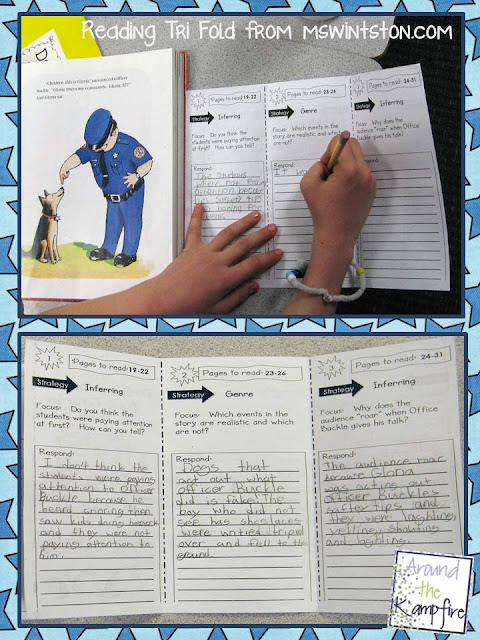 Reading Tri Fold from mswintston.com
Children, this is Gloria," announced Officer
Buckle. "Gloria obeys my commands. Gloria, SIT!"
And Gloria sat.
1
Pages to read:19-22
Strategy
Inferring
Focus: Do you think the
students were paying attention
at first? How can you tell?
Respond:
The Students
where not
attention
his safety tips
2
Pages to read:23-26
Strategy
Genre
Focus: Which events in the
story are realistic and which
are not?
Respond:
It
3
Pages to read: 24-31
Strategy
Inferring
Focus: Why does the
audience "roar" when Officer
Buckle gives his talk?
Respond:
1
Pages to read:19-22
Strategy
Inferring
Focus: Do you think the
students were paying attention
at first? How can you tell?
Respond:
I don't think the
students were paying
attention to officer
Buckle because he
heard snoring then
saw kids doing
and they were not
paying attention to
him.
2
Pages to read: 23-26
Strategy
Genre
Focus: Which events in the
story are realistic and which
are not?
Respond:
Dogs that
act out what
officer Buckle
did is fake. The
boy who did not
see has sheslaces
were untied triped
over and fell to the
ground.
3
Pages to read: 24-31
Strategy
Inferring
Focus: Why does the
audience "roar" when Office
Buckle gives his talk?
Respond:
The audience roar
because Gloria
was acting out
officer Buckles
saftey tips and
they were laghing,
yelling, showting
and laghling.
Around
the
Kampfire